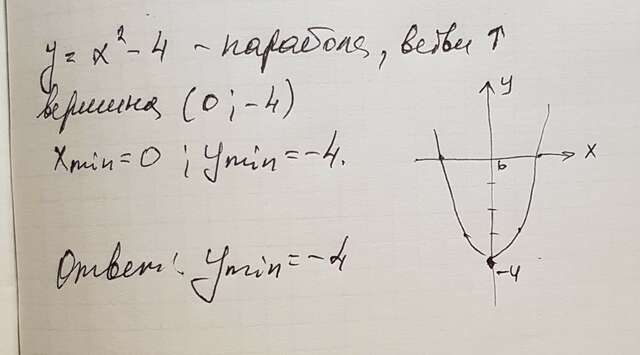 y = x² - 4 - парабола, ветви ↑
вершина (0 ; -4)
xmin = 0 ; ymin = -4.
Ответ: ymin = -4
y
x
0
-4